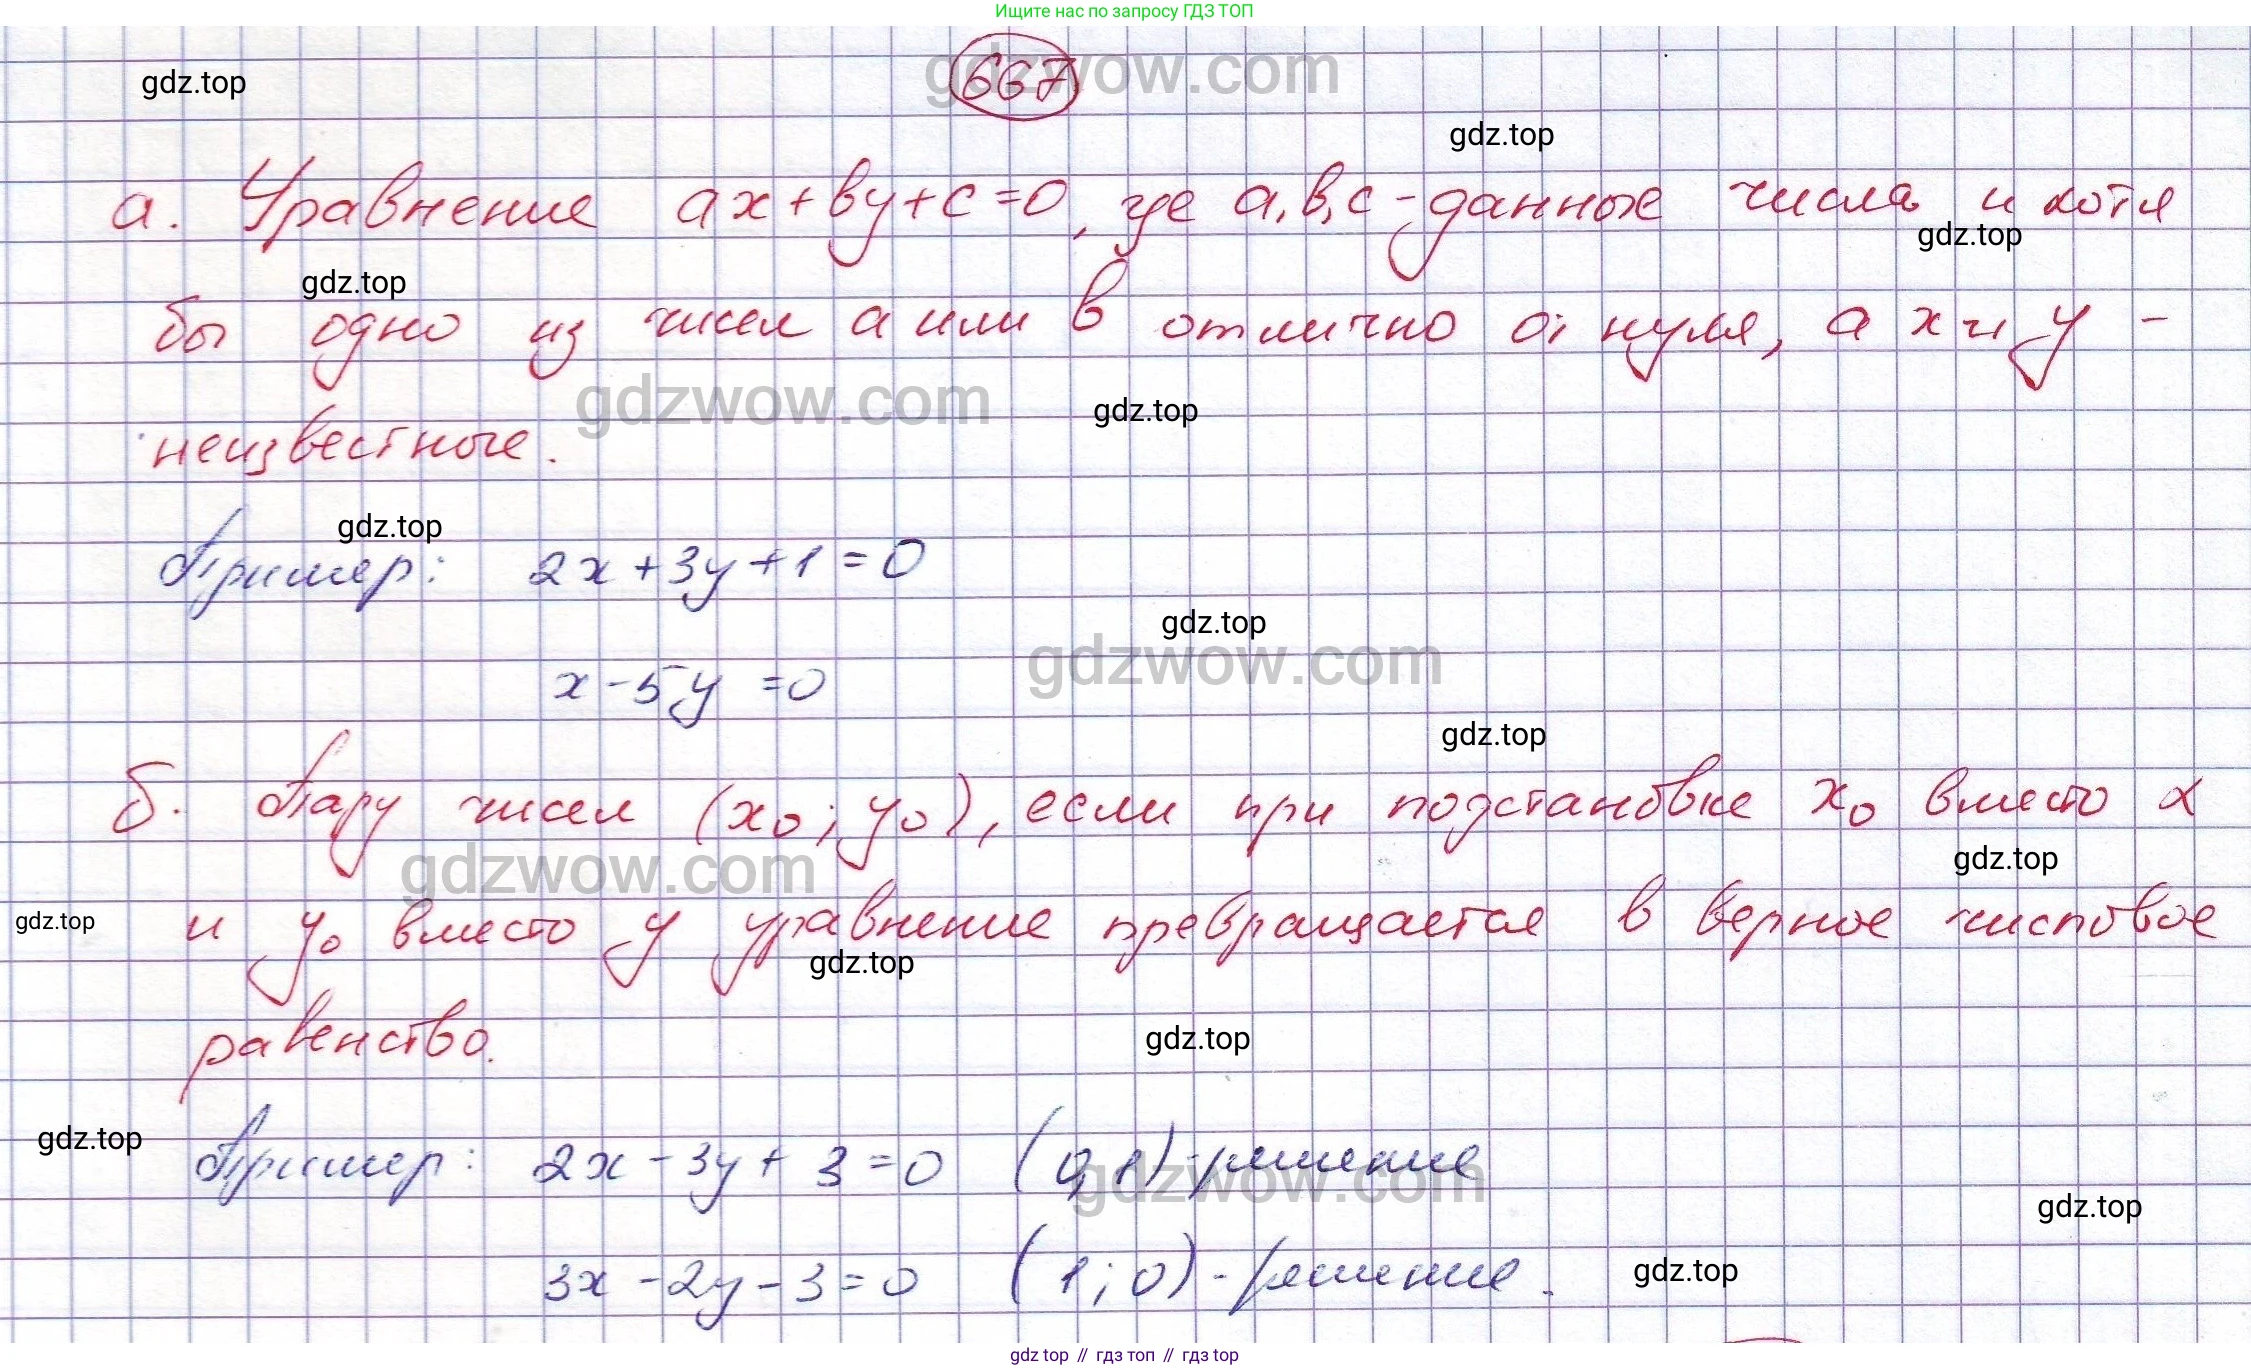 Ищите нас по запросу ГДЗ ТОП
gdzwow.com
667
gdz.top
gdz.top
а. Уравнение ax+вy+c=0, где а,в,с - данные числа и хотя
gdz.top
gdz.top
бы одно из чисел а или в отлично от нуля, а х и у -
gdzwow.com
gdz.top
неизвестные.
gdz.top
Пример: 2x+3y+1=0
gdz.top
gdzwow.com
x-5y =0
gdz.top
б. Пару чисел (x₀; y₀), если при подстановке x₀ вместо x
gdzwow.com
gdz.top
gdz.top
и y₀ вместо y уравнение превращается в верное числовое
gdz.top
равенство.
gdz.top
gdz.top
Пример: 2x-3y+3=0 (0;1)-решение
gdzwow.com
gdz.top
3x-2y-3=0 (1;0)-решение.
gdz.top
gdz top // гдз топ // гдз top